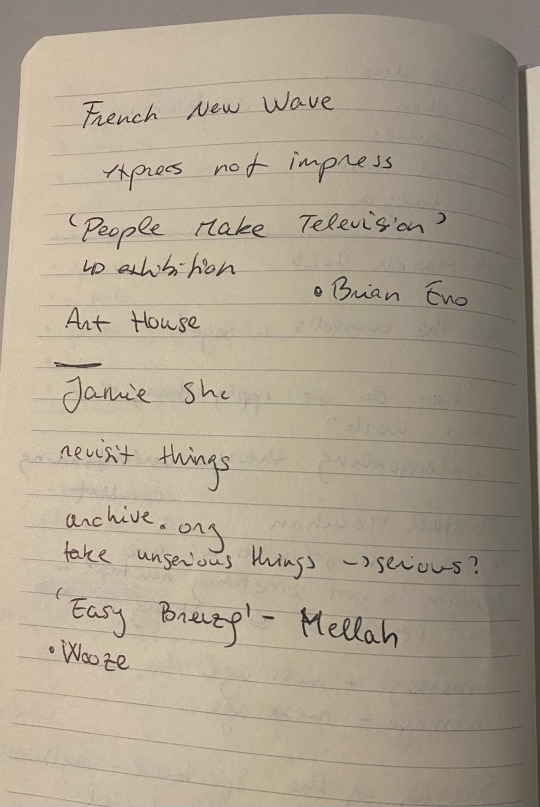 French New Wave
express not impress
'People Make Television'
↳ exhibition
• Brian Eno
Art House
Jamie She
revisit things
archive.org
take unserious things → serious?
'Easy Breezy' - Mellah
• Wooze